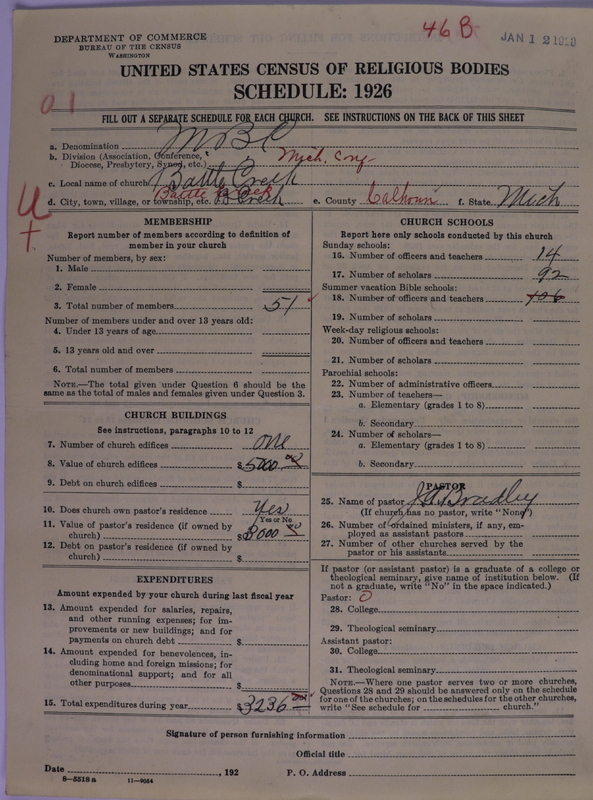 46 B
JAN 12
DEPARTMENT OF COMMERCE
BUREAU OF THE CENSUS
WASHINGTON
UNITED STATES CENSUS OF RELIGIOUS BODIES
SCHEDULE: 1926
FILL OUT A SEPARATE SCHEDULE FOR EACH CHURCH. SEE INSTRUCTIONS ON THE BACK OF THIS SHEET
a. Denomination MBC
b. Division (Association, Conference, Diocese, Presbytery, Synod, etc.) Mich. Conf
c. Local name of church Battle Creek
d. City, town, village, or township, etc. Battle Creek B. Creek e. County Calhoun f. State Mich
MEMBERSHIP
Report number of members according to definition of
member in your church
Number of members, by sex:
1. Male
2. Female
3. Total number of members 51
Number of members under and over 13 years old:
4. Under 13 years of age
5. 13 years old and over
6. Total number of members
NOTE.—The total given under Question 6 should be the
same as the total of males and females given under Question 3.
CHURCH BUILDINGS
See instructions, paragraphs 10 to 12
7. Number of church edifices one
8. Value of church edifices $5000 00
9. Debt on church edifices $
10. Does church own pastor's residence Yes
Yes or No
11. Value of pastor's residence (if owned by
church) $3000
12. Debt on pastor's residence (if owned by
church) $
EXPENDITURES
Amount expended by your church during last fiscal year
13. Amount expended for salaries, repairs,
and other running expenses; for im-
provements or new buildings; and for
payments on church debt $
14. Amount expended for benevolences, in-
cluding home and foreign missions; for
denominational support; and for all
other purposes $
15. Total expenditures during year $3236
CHURCH SCHOOLS
Report here only schools conducted by this church
Sunday schools:
16. Number of officers and teachers 14
17. Number of scholars 92
Summer vacation Bible schools:
18. Number of officers and teachers 106
19. Number of scholars
Week-day religious schools:
20. Number of officers and teachers
21. Number of scholars
Parochial schools:
22. Number of administrative officers
23. Number of teachers—
a. Elementary (grades 1 to 8)
b. Secondary
24. Number of scholars—
a. Elementary (grades 1 to 8)
b. Secondary
PASTOR
25. Name of pastor Bradley
(If church has no pastor, write "None")
26. Number of ordained ministers, if any, em-
ployed as assistant pastors
27. Number of other churches served by the
pastor or his assistants
If pastor (or assistant pastor) is a graduate of a college or
theological seminary, give name of institution below. (If
not a graduate, write "No" in the space indicated.)
Pastor: 0
28. College
29. Theological seminary
Assistant pastor:
30. College
31. Theological seminary
NOTE.—Where one pastor serves two or more churches,
Questions 28 and 29 should be answered only on the schedule
for one of the churches; on the schedules for the other churches,
write "See schedule for church."
Signature of person furnishing information
Official title
Date , 192 P. O. Address
8—5518 a 11—9054